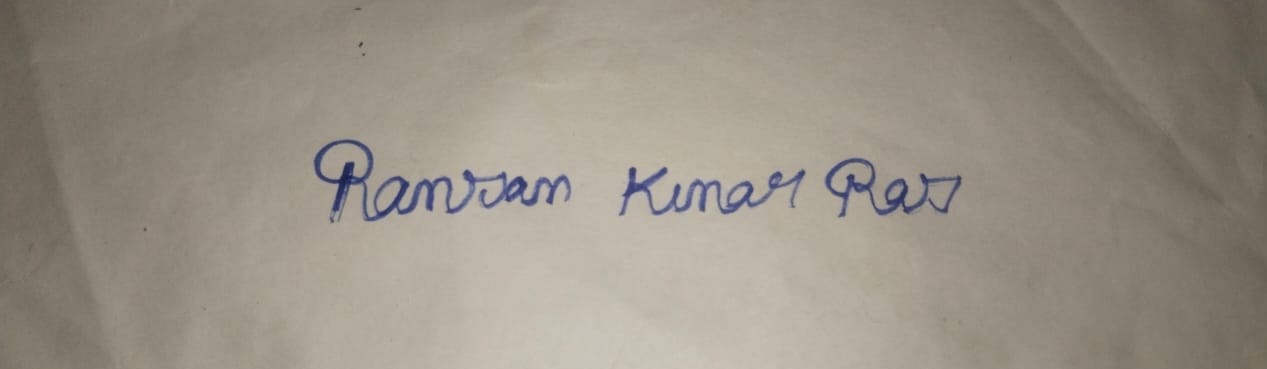 Ranjan Kumar Ras